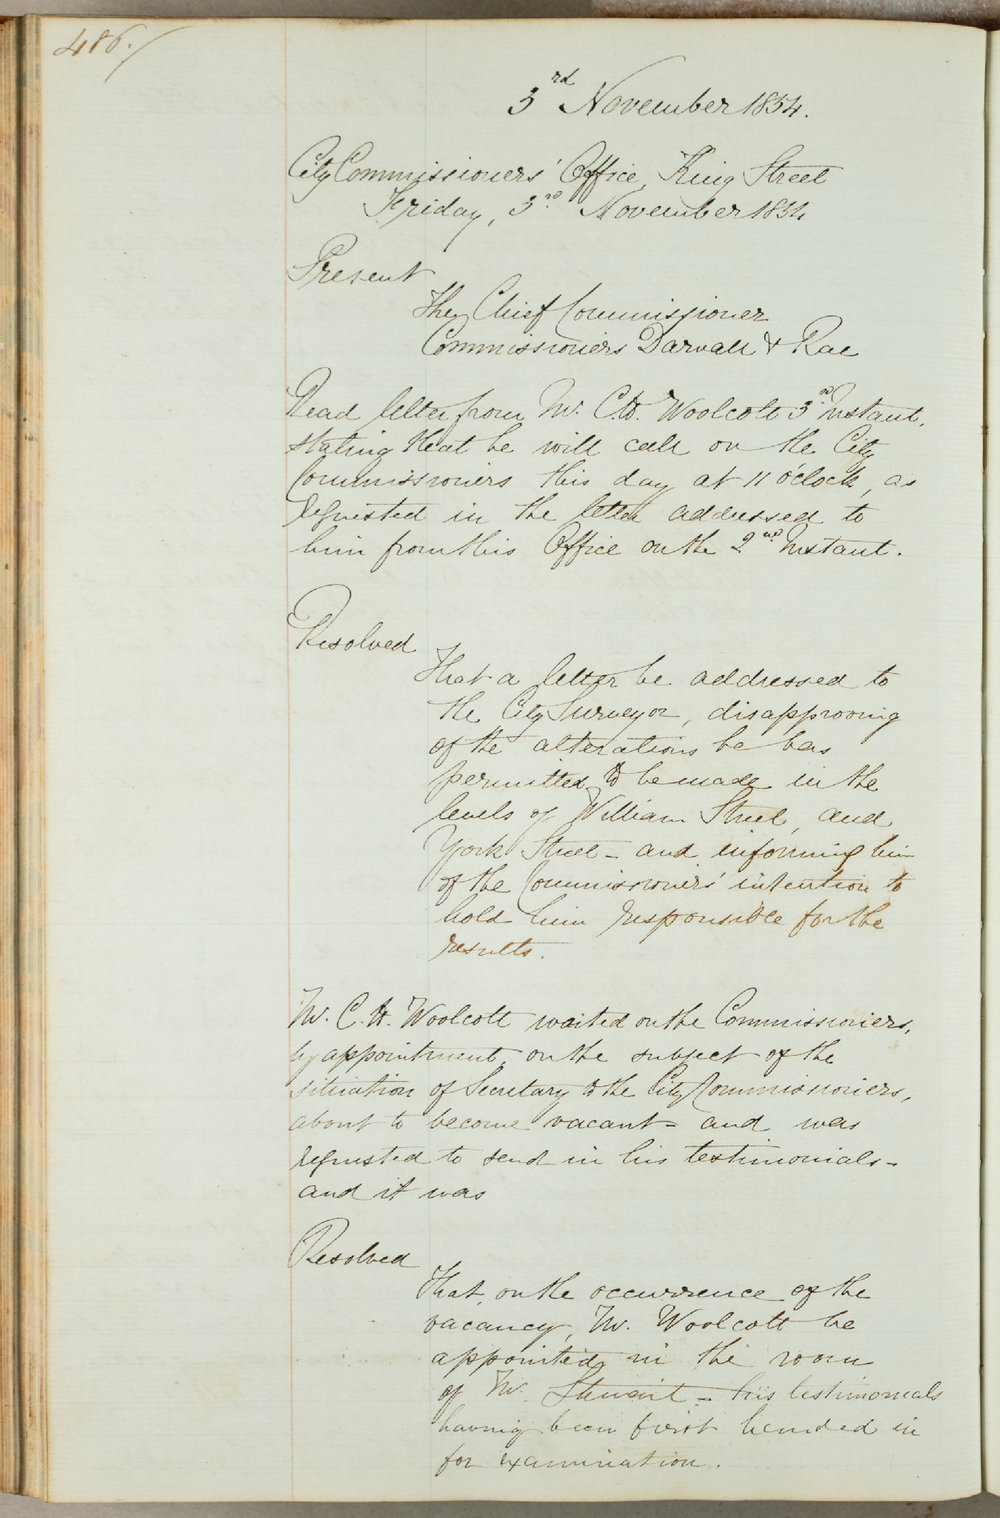 486.
3rd November 1854.
City Commissioners' Office, King Street
Friday, 3rd November 1854
Present
The Chief Commissioner
Commissioners Darvall & Rae
Read letter from Mr. C.H. Woolcott 3rd Instant,
stating that he will call on the City
Commissioners this day at 11 o'clock, as
requested in the letter addressed to
him from this Office on the 2nd Instant.
Resolved
That a letter be addressed to
the City Surveyor, disapproving
of the alterations he has
permitted to be made in the
levels of William Street, and
York Street - and informing him
of the Commissioners' intention to
hold him responsible for the
results.
Mr. C. H. Woolcott waited on the Commissioners,
by appointment, on the subject of the
situation of Secretary to the City Commissioners,
about to become vacant - and was
requested to send in his testimonials -
and it was
Resolved
That, on the occurrence of the
vacancy, Mr. Woolcott be
appointed in the room
of Mr. Stewart - his testimonials
having been first handed in
for examination.